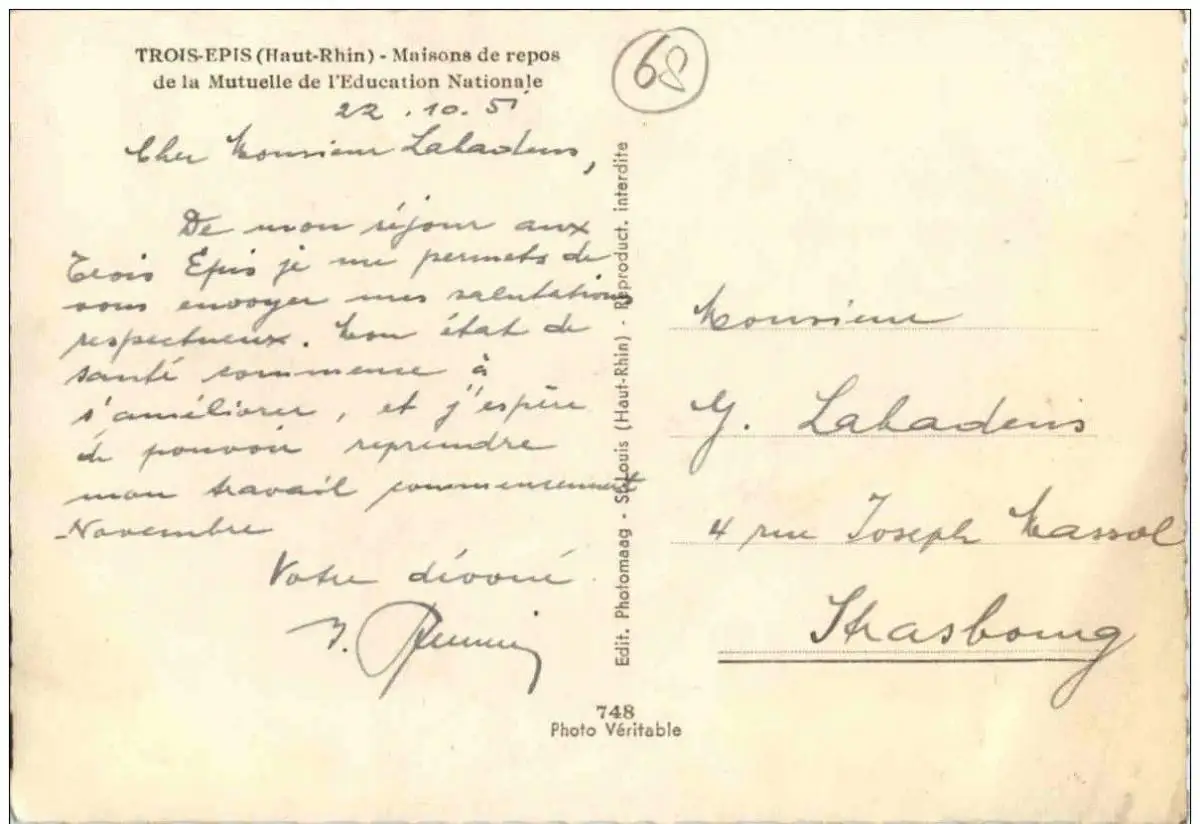 TROIS-EPIS (Haut-Rhin) - Maisons de repos
de la Mutuelle de l'Education Nationale
68
22.10.51
Cher Monsieur Labadens,
De mon séjour aux
Trois Épis je me permets de
vous envoyer mes salutations
respectueux. Mon état de
santé commence à
s'améliorer, et j'espère
de pouvoir reprendre
mon travail commencement
Novembre
Votre dévoué
Edit. Photomaag - St-Louis (Haut-Rhin) - Reproduct. interdite
748
Photo Véritable
Monsieur
G. Labadens
4 rue Joseph Massol
Strasbourg